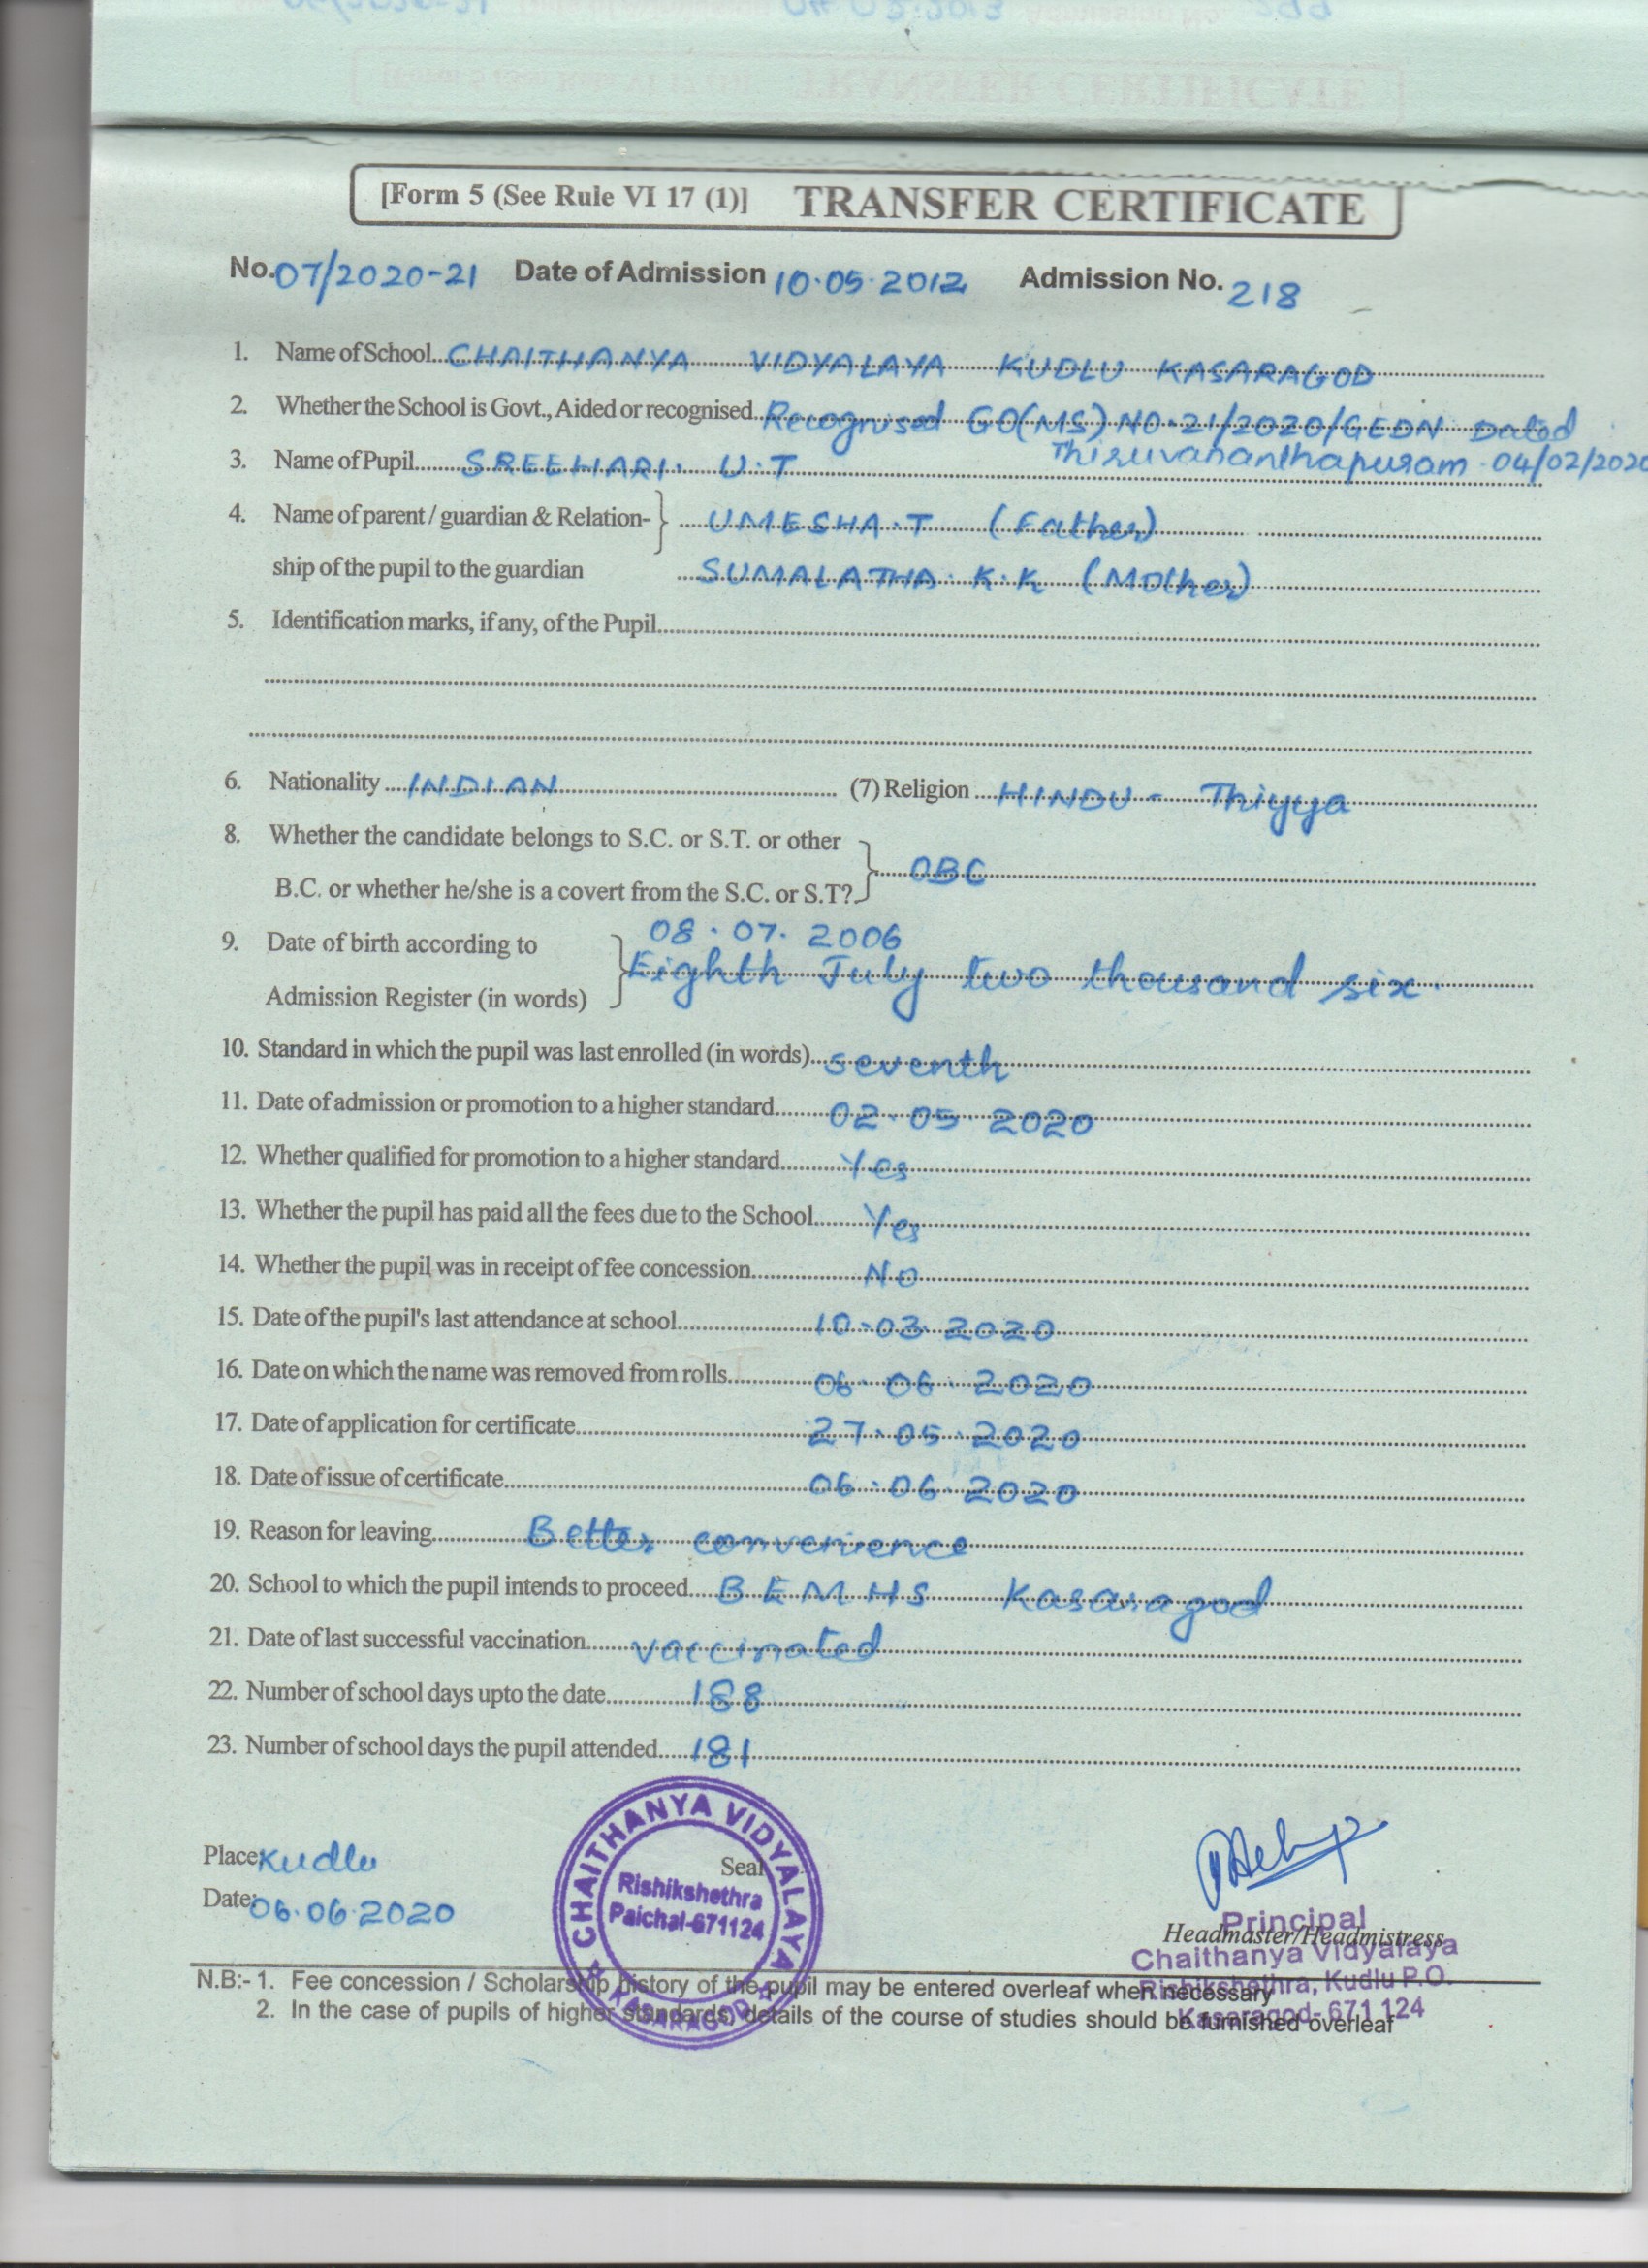 [Form 5 (See Rule VI 17 (1)] TRANSFER CERTIFICATE
No. 07/2020-21 Date of Admission 10.05.2012 Admission No. 218
1. Name of School CHAITHANYA VIDYALAYA KUDLU KASARAGOD
2. Whether the School is Govt., Aided or recognised Recognised GO(MS) NO.21/2020/GEDN Dated
Thiruvananthapuram 04/02/2020
3. Name of Pupil SREEHARI. U.T
4. Name of parent / guardian & Relation- UMESHA.T (Father)
ship of the pupil to the guardian SUMALATHA. K.K (Mother)
5. Identification marks, if any, of the Pupil
6. Nationality INDIAN (7) Religion HINDU - Thiyya
8. Whether the candidate belongs to S.C. or S.T. or other
B.C. or whether he/she is a covert from the S.C. or S.T? OBC
08.07.2006
9. Date of birth according to Eighth July two thousand six.
Admission Register (in words)
10. Standard in which the pupil was last enrolled (in words) seventh
11. Date of admission or promotion to a higher standard 02.05.2020
12. Whether qualified for promotion to a higher standard Yes
13. Whether the pupil has paid all the fees due to the School Yes
14. Whether the pupil was in receipt of fee concession No
15. Date of the pupil's last attendance at school 10.03.2020
16. Date on which the name was removed from rolls 06.06.2020
17. Date of application for certificate 27.05.2020
18. Date of issue of certificate 06.06.2020
19. Reason for leaving Better convenience
20. School to which the pupil intends to proceed B E M H S Kasaragod
21. Date of last successful vaccination vaccinated
22. Number of school days upto the date 188
23. Number of school days the pupil attended 181
Place: Kudlu
Date: 06.06.2020
Seal
CHAITHANYA VIDYALAYA
Rishikshethra
Paichal-671124
KASARAGOD
Headmaster/Headmistress
Principal
Chaithanya Vidyalaya
Rishikshethra, Kudlu P.O.
Kasaragod- 671 124
N.B:- 1. Fee concession / Scholarship history of the pupil may be entered overleaf when necessary
2. In the case of pupils of higher standards, details of the course of studies should be furnished overleaf